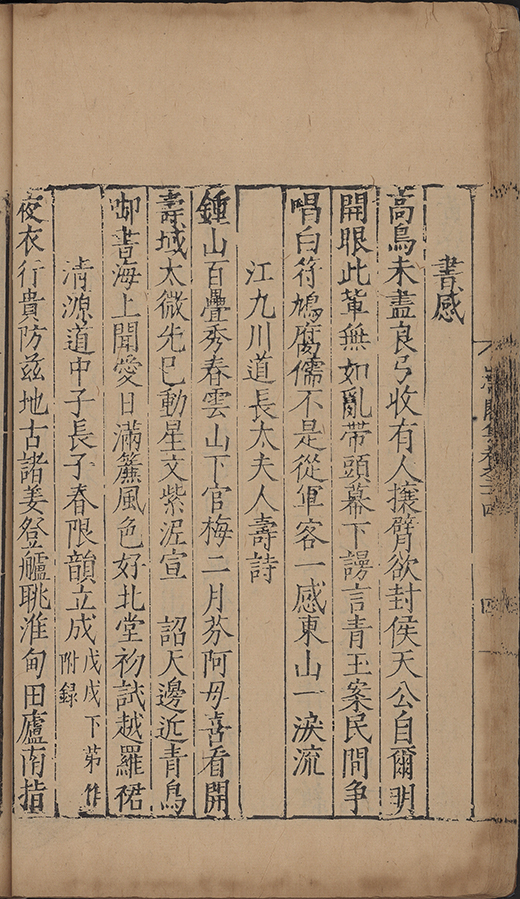 書感
高鳥未盡良弓收有人攘臂欲封侯天公自爾明
開眼此輩無如亂帶頭幕下謗言青玉案民間爭
唱白符鳩腐儒不是從軍客一感東山一淚流
江九川道長太夫人壽詩
鍾山百疊秀春雲山下官梅二月芬阿母喜看開
壽域太微先已動星文紫泥宣 詔天邊近青鳥
啣書海上聞愛日滿簾風色好北堂初試越羅裙
清源道中子長子春限韻立成戊戌下第作附録
夜衣行貴防茲地古諸姜登艫眺淮甸田廬南指